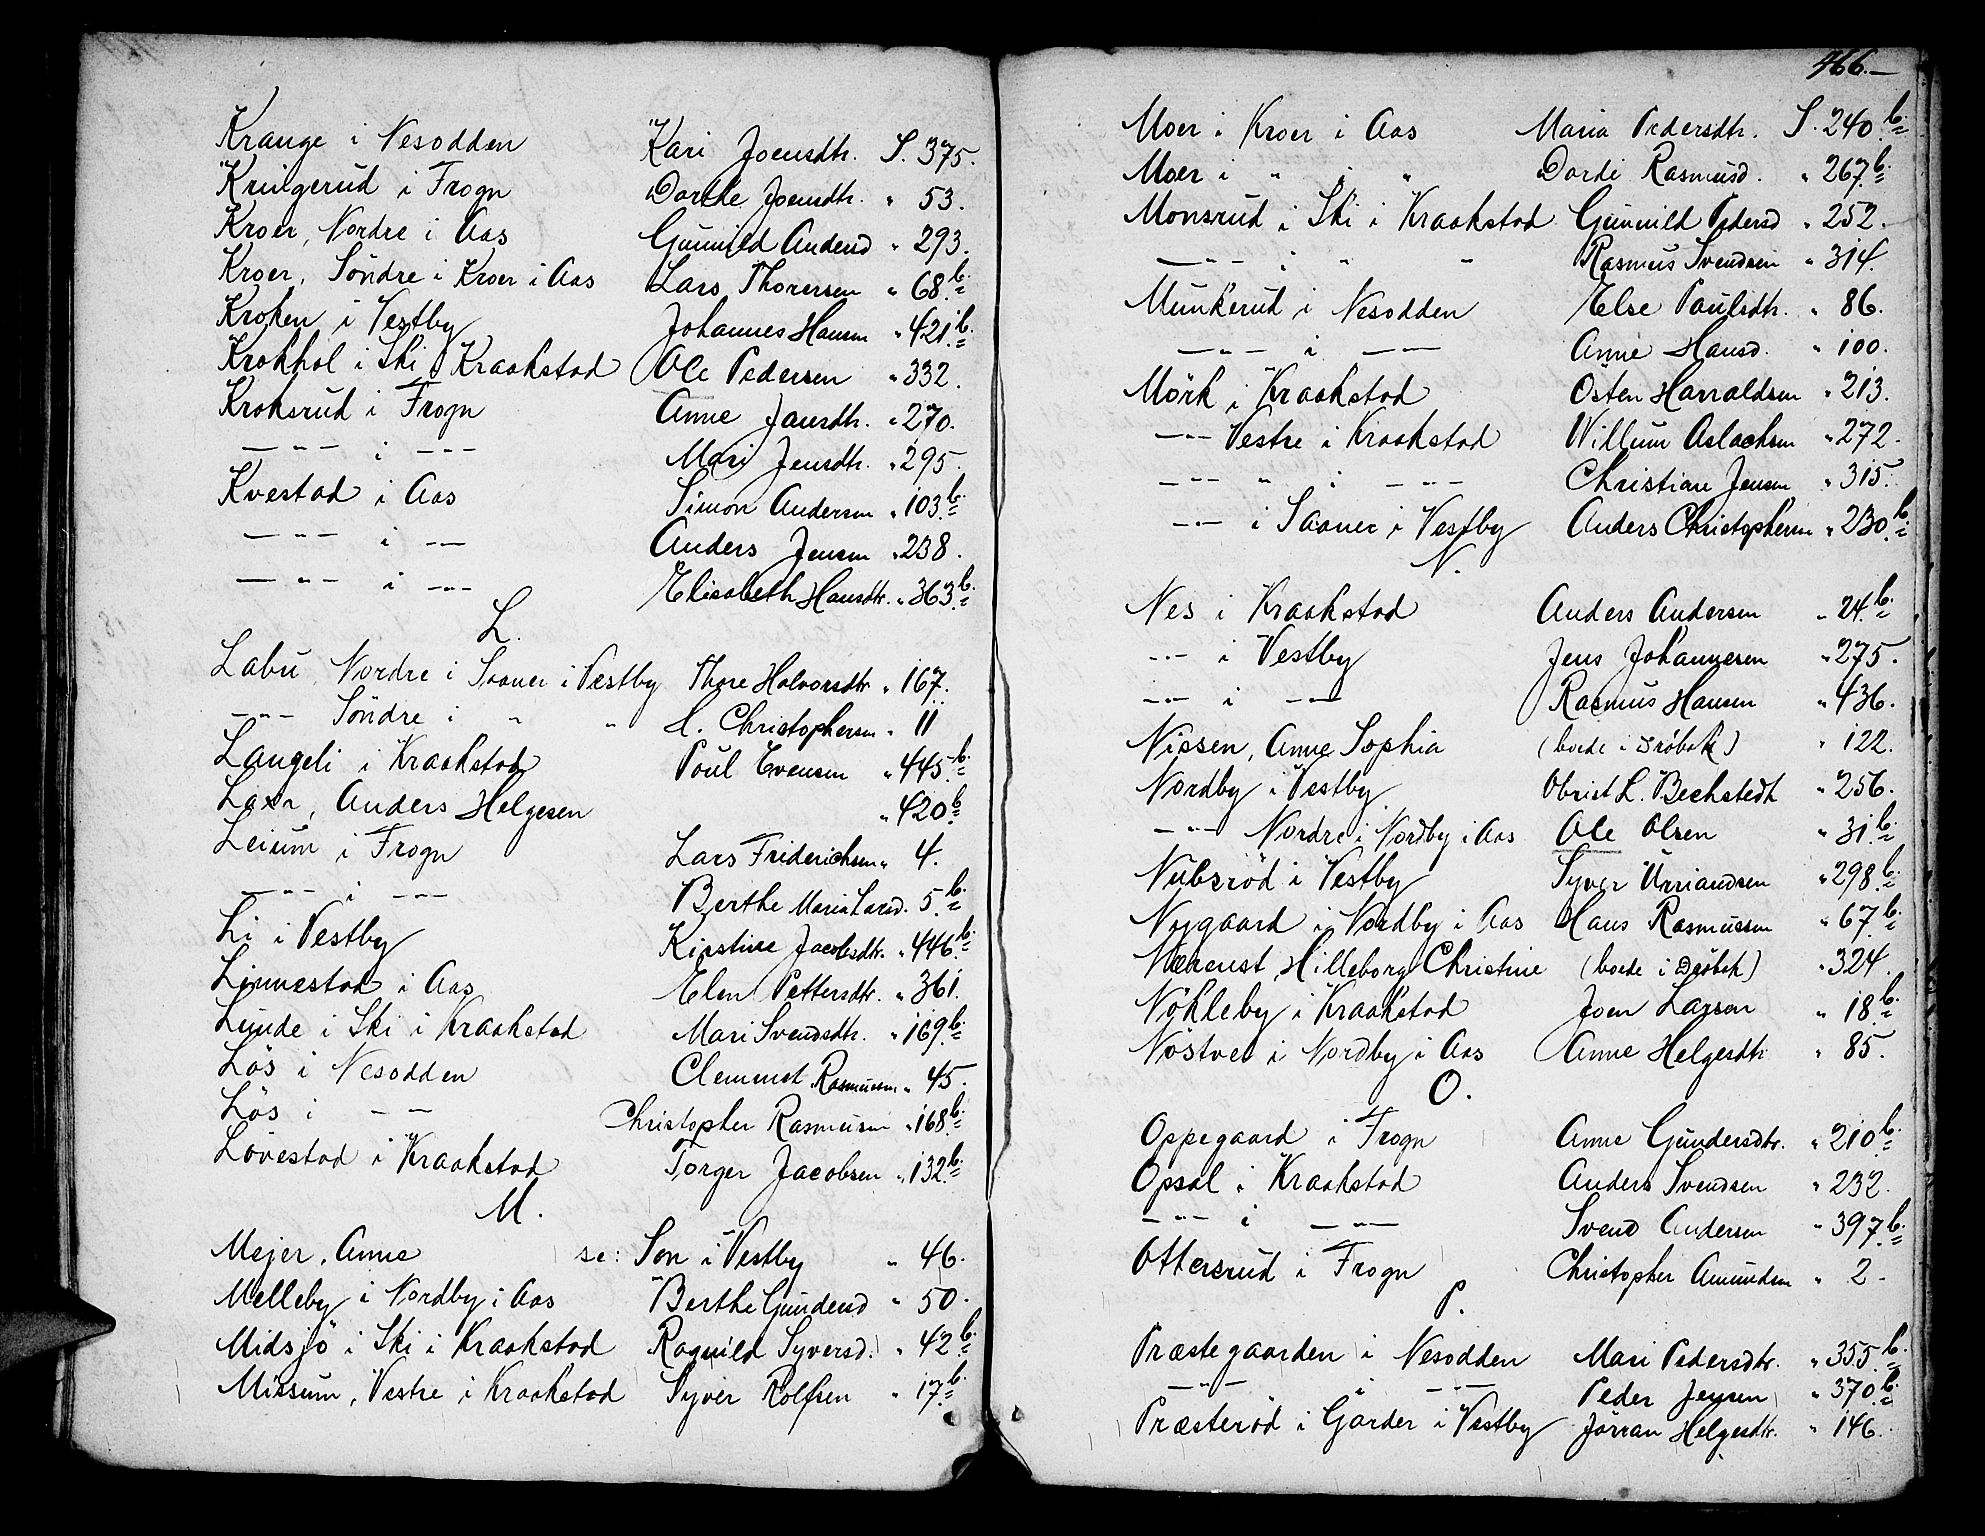 Krange i Nesodden Kari Joensdtr. S. 375.
Kringerud i Frogn Dorthe Joensdtr. " 53.
Kroer, Nordre i Aas Gunnild Andersd " 293.
Kroer, Söndre i Kroer i Aas Lars Thoresen " 68.b.
Kroken i Vestby Johannes Hansen " 421.b.
Krokhol i Ski i Kraakstad Ole Pedersen " 332.
Kroksrud i Frogn Anne Jansdtr. " 270.
— " — i — " — Mari Jensdtr. " 295.
Kvestad i Aas Simon Andersen " 103.b.
— " — i — " — Anders Jensen " 238.
— " — i — " — Elisabeth Hansdtr. " 363.b.
L.
Labu Nordre i Saaner i Vestby Thore Halvorsdtr " 167.
— " — Söndre i " " H. Christophersen " 11
Langeli i Kraakstad Poul Evensen " 445.b.
Laxr, Anders Helgesen " 420.b.
Leium i Frogn Lars Friderichsen " 4.
— " — i — " — Berthe Maria Larsd. 5.b.
Li i Vestby Kirstine Jacobsdtr. " 446.b.
Linnestad i Aas Elen Pettersdtr. " 361.
Lunde i Ski i Kraakstad Mari Svendsdtr. " 169.b.
Lös i Nesodden Clemmet Rasmusen " 45.
Lös i — — Christopher Rasmusen " 168.b.
Lövestad i Kraakstad Torger Jacobsen " 132.b.
M.
Mejer, Anne se: Son i Vestby " 46.
Melleby i Nordby i Aas Berthe Gundersd " 50.
Midsjö i Ski i Kraakstad Ragnild Syversd. " 42.b.
Missum, Vestre i Kraakstad Syver Rolfsen " 17.b.
466.—
Moer i Kroer i Aas Maria Pedersdtr. S. 240.b.
Moer i " i " Dorde Rasmusd. " 267.b.
Monsrud i Ski i Kraakstad Gunnild Pedersd " 252.
— " — i " " Rasmus Svendsen " 314.
Munkerud i Nesodden Else Paulsdtr. " 86.
— " — i — — Anne Hansd. " 100.
Mörk i Kraakstad Östen Harraldsen " 213.
— " — Vestre i Kraakstad Willum Aslachsen " 272.
— " — " i — " — Christian Jensen " 315.
— " — i Saaner i Vestby Anders Christophersen " 230.b.
N.
Nes i Kraakstad Anders Andersen " 24.b.
— " — i Vestby Jens Johannesen " 275.
— " — i — " — Rasmus Hansen " 436.
Nissen, Anne Sophia (boede i Dröbak) " 122.
Nordby i Vestby Obrist L. Bechstedt " 256.
— " — Nordre i Nordby i Aas Ole Olsen " 31.b.
Nubsröd i Vestby Syver Urriandsen " 298.b.
Nygaard i Nordby i Aas Hans Rasmussen " 67.b.
Nærenst, Hilleborg Christine (boede i Dröbak) " 324.
Nökleby i Kraakstad Joen Larsen " 18.b.
Nöstvet i Nordby i Aas Anne Helgesdtr " 85.
O.
Oppegaard i Frogn Anne Gundersdtr. " 210.b.
Opsal i Kraakstad Anders Svendsen " 232.
— " — i — " — Svend Andersen " 397.b.
Ottersrud i Frogn Christopher Amundsen " 2.
P.
Præstegaarden i Nesodden Mari Pedersdtr. " 355.b.
— " — i — " — Peder Jensen " 370.b.
Præsteröd i Garder i Vestby Jörran Helgesdtr. " 146.